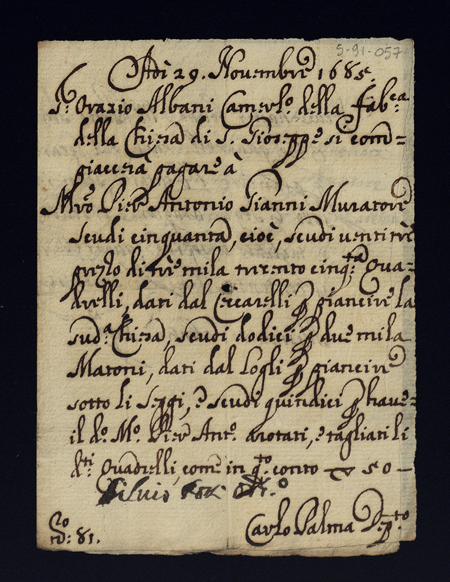 5-91-057
Adì 29. Novembre 1685.
Sr. Orazio Albani Camerlo. della fabca.
della Chiesa di S. Gioseppe si com=
piacerà pagare à
Mro. Pier Antonio Gianni Muratore
scudi cinquanta, cioè, scudi ventitrè
prezzo di trè mila trecento cinqta. Qua=
drelli, dati dal Ceccarelli p piancire la
suda. Chiesa, scudi dodici p due mila
Matoni, dati dal p piancire
sotto li Seggi, e scudi quindici p haver
il do. Mo. Pier Anto. arotati, e tagliati li
dti. Quadrelli, come in qto. conto 50 -
Silvio
Carlo Palma Dpto
no: 81.